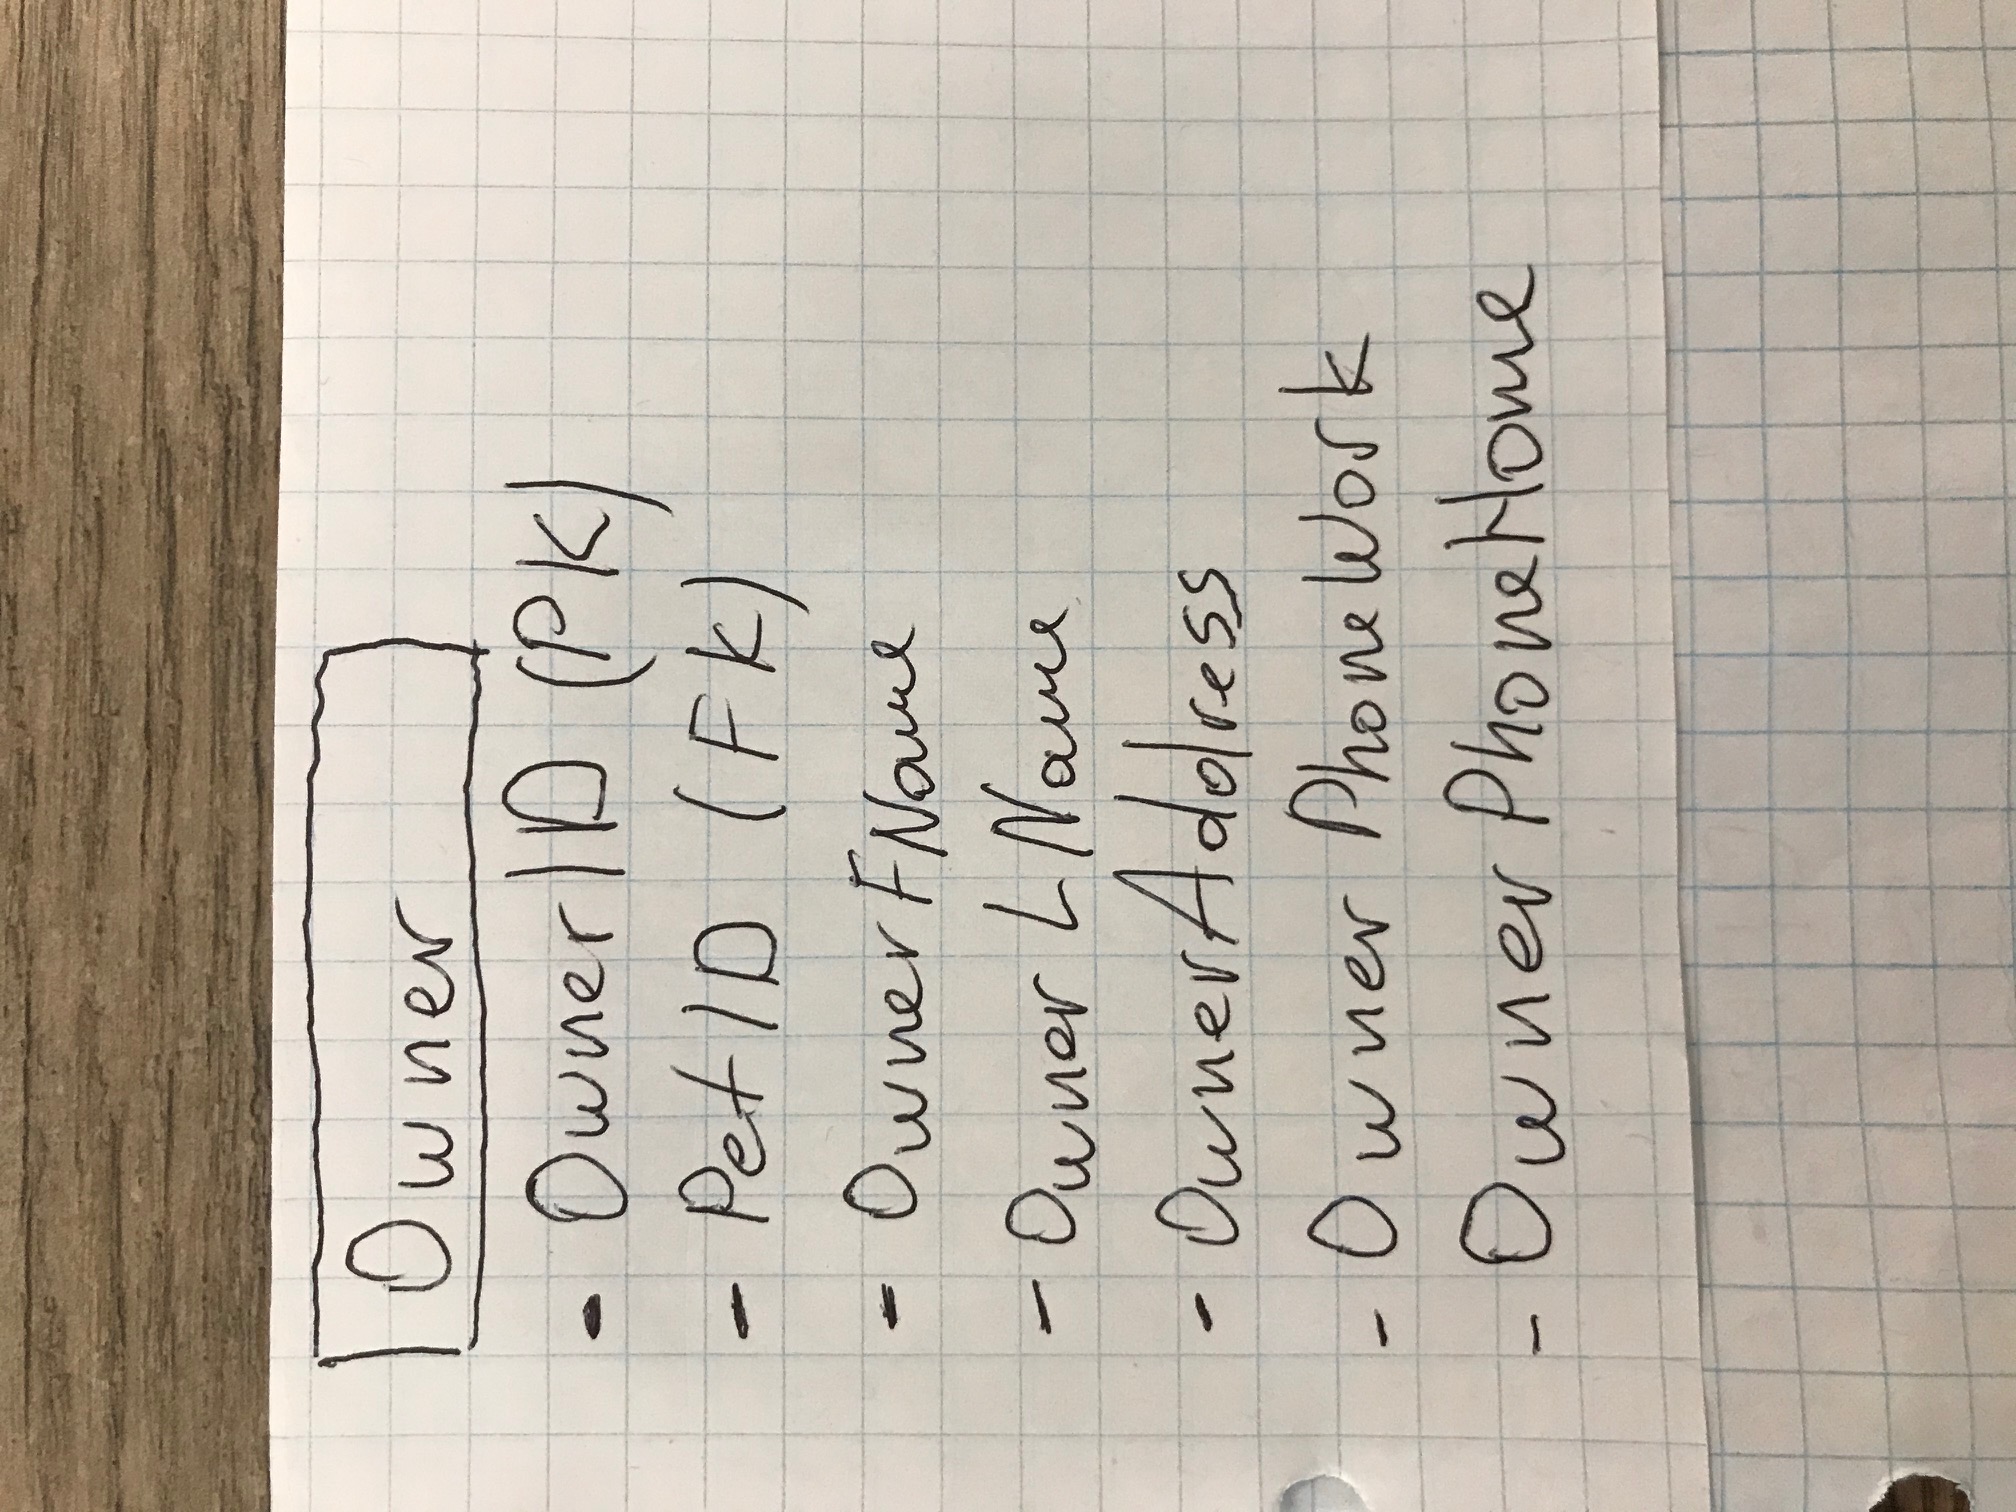 Owner
- OwnerID (PK)
- PetID (FK)
- OwnerFName
- Owner LName
- OwnerAddress
- Owner PhoneWork
- Owner PhoneHome